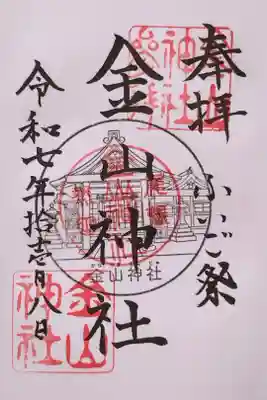 奉拝
ふいご祭
金山神社
令和七年拾壱月八日
金山神社
金山神社